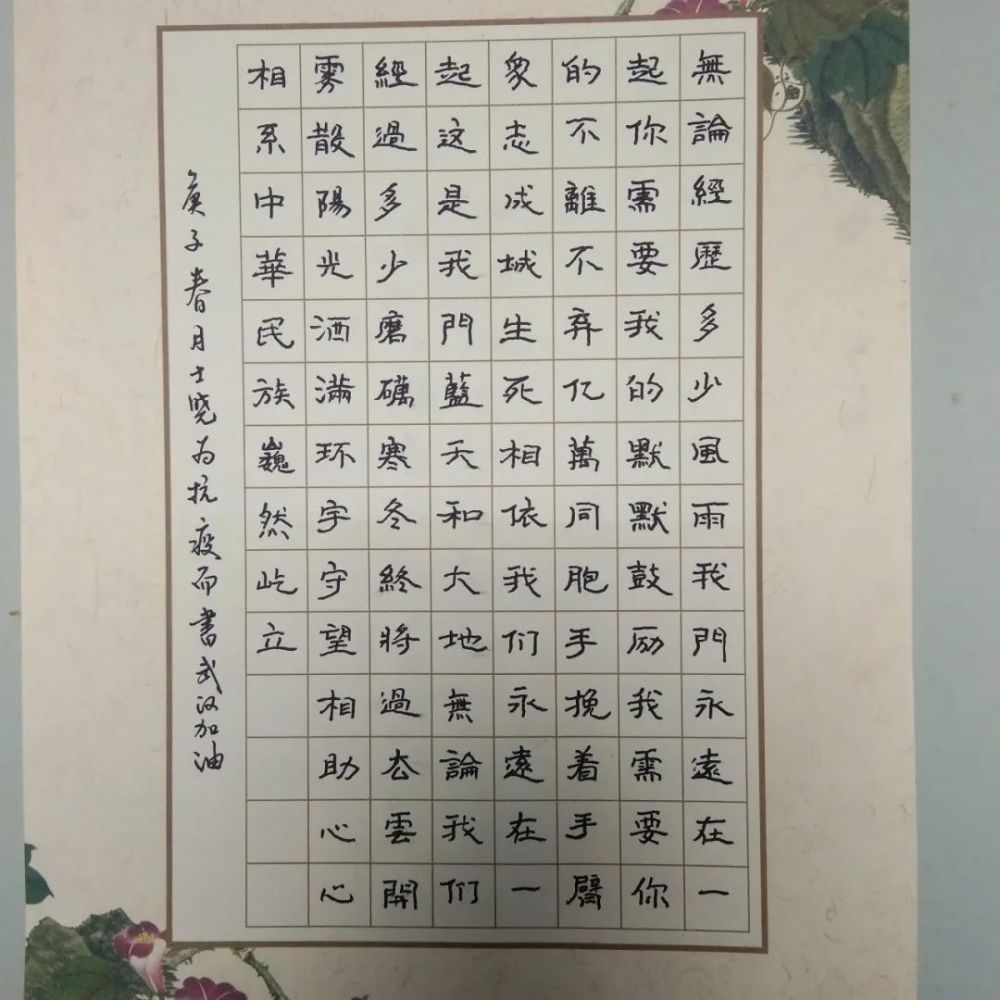 無論經歷多少風雨我門永遠在一
起你需要我的默默鼓励我需要你
的不離不弃亿萬同胞手挽着手臂
衆志成城生死相依我们永遠在一
起这是我門藍天和大地無論我们
經過多少磨礪寒冬終將過去雲開
雾散陽光洒滿环宇守望相助心心
相系中華民族巍然屹立
庚子春月士晓为抗疫而書武汉加油